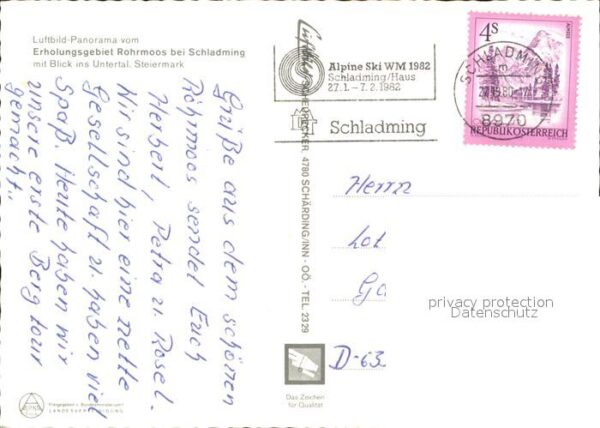 Luftbild-Panorama vom
Erholungsgebiet Rohrmoos bei Schladming
mit Blick ins Untertal. Steiermark
Grüße aus dem schönen
Rohrmoos sendet Euch
Herbert, Petra u. Rosel.
Wir sind hier eine nette
Gesellschaft u. haben viel
Spaß Heute haben wir
unsere erste Bergtour
gemacht.
LANDESVERTEIDIGUNG
4780 SCHÄRDING/INN - OÖ. - TEL. 2329
Alpine Ski WM 1982
Schladming/Haus
27.1. - 7.2.1982
Schladming
4S
REPUBLIK ÖSTERREICH
SCHLADMING
8970
Herrn
Lot
Ga
D-63
privacy protection
Datenschutz
Das Zeichen
für Qualität